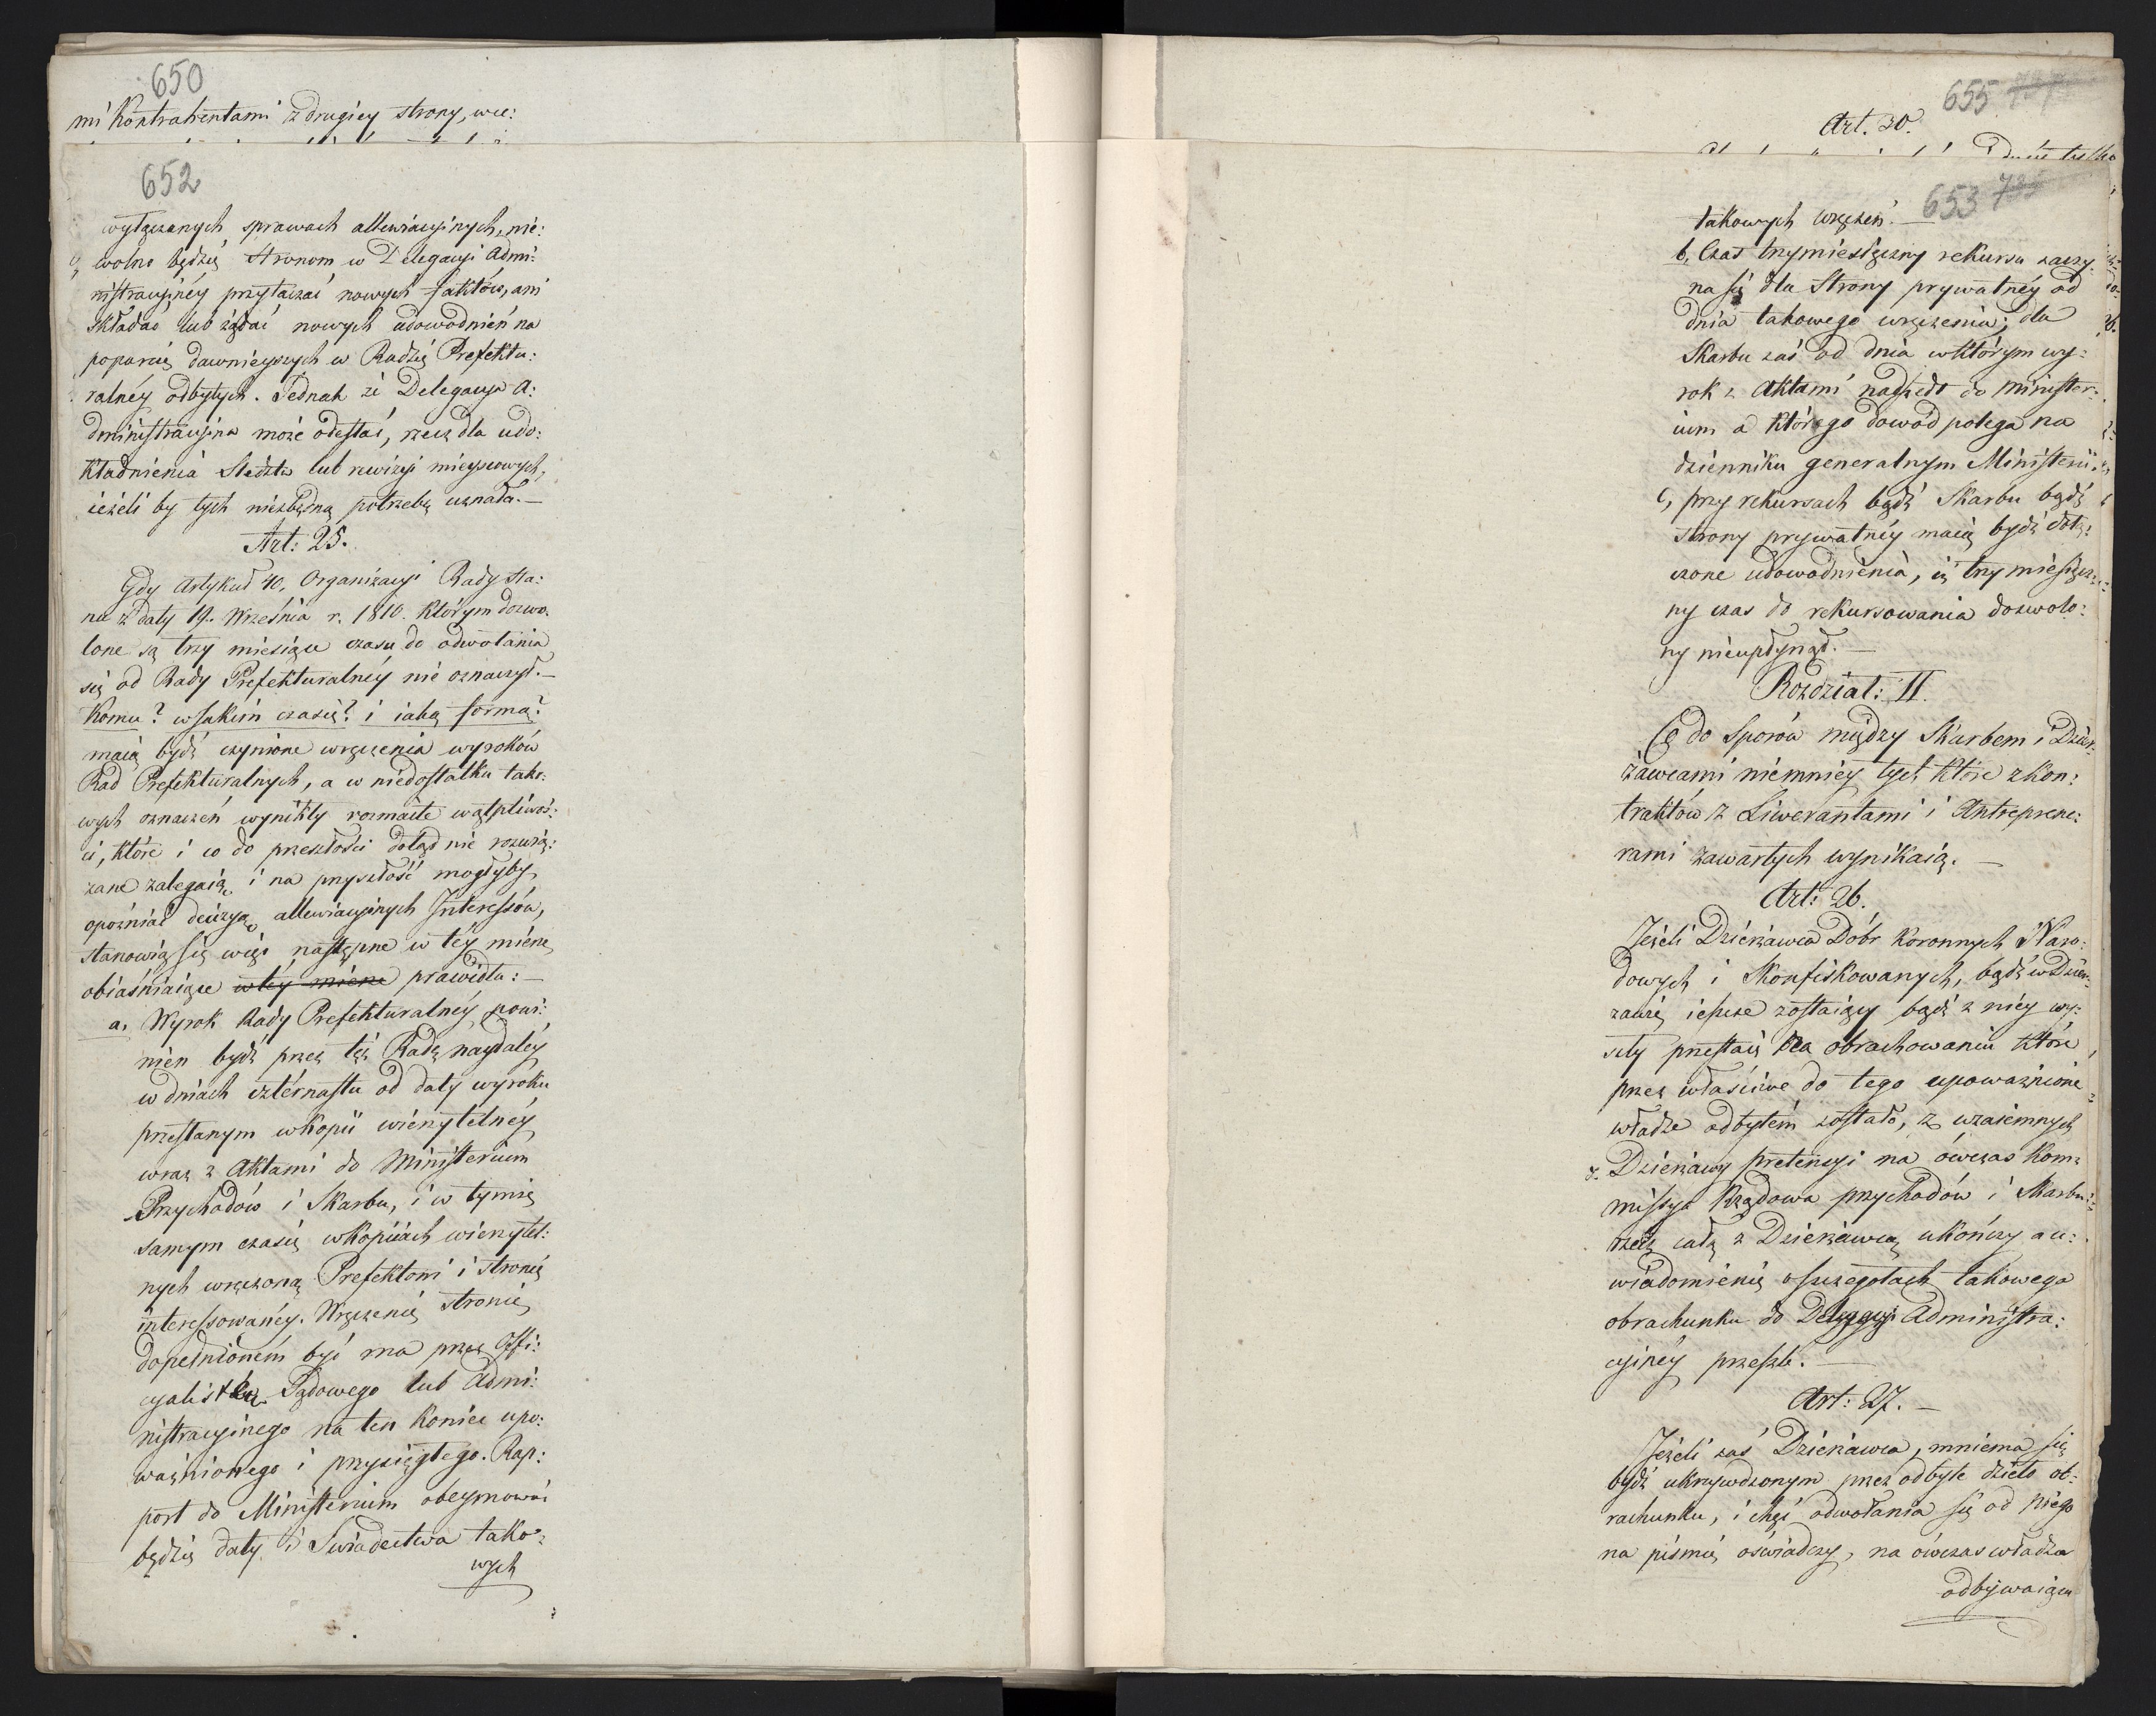 650
mi Kontrahentami z drugiey strony, wie:
652
wyłączanych sprawach allewiacyinych, nie:
wolno będzie Stronom w Delegacyi Admi:
nistracyiney przytaczać nowych faktów, ani
składać lub żądać nowych udowodnień na
poparcie dawnieyszych w Radzie Prefektu:
ralnéy odbytych. Jednak że Delegacya A:
dministracyina może odesłać, rzecz dla udo:
kładnienia Śledztw lub rewizyi mieyscowych,
ieżeli by tych niezbędną potrzebę uznała.—
Art: 25.
Gdy Artykuł 40, Organizacyi Rady Sta:
nu z daty 19. Września r. 1810. którym dozwo:
lone są trzy miesiące czasu do odwołania
się od Rady Prefekturalnéy nie oznaczył.—
Komu? w Jakim czasie? i iaką formą?
maią bydź czynione wręczenia wyroków
Rad Prefekturalnych, a w niedostatku tako:
wych oznaczeń wynikły rozmaite wątpliwoś:
ci, które i co do przeszłości dotąd nie rozwią:
zane zalegaią, i na przyszłość mogłyby
opóźniać decyzyą allewiacyinych Interessów,
stanowią się więc następne w téy mierze
obiaśniaiące w téy mierze prawidła:—
a, Wyrok Rady Prefekturalnéy powi:
nien bydź przez tęż Radę naydaléy
w dniach czternastu od daty wyroku
przesłanym w kopii wierzytelnéy
wraz z Aktami do Ministerium
Przychodów i Skarbu, i w tymże
samym czasie w kopiiach wierzytel:
nych wręczoną Prefektowi i stronie
interessowanéy. Wręczenie stronie
dopełnioném być ma przez Offi:
cyalistę Sądowego lub Admi:
nistracyinego na ten koniec upo:
ważnionego i przysięgłego. Rap:
port do Ministerium obeymować
będzie daty i Świadectwa tako:
wych
655
Art. 30.
653 735
takowych wręczeń.—
b, Czas trzymiesięczny rekursu zaczy:
na się dla Strony prywatnéy od
dnia takowego wręczenia; dla
Skarbu zaś od dnia w którym wy:
rok z Aktami nadszedł do Minister:
ium a którego dowód polega na
dzienniku generalnym Ministerii.
c, przy rekursach bądź Skarbu bądź
strony prywatnéy maią bydź dołą:
czone udowodnienia, iż trzymiesięcz:
ny czas do rekursowania dozwolo:
ny nieupłynął.—
Rozdział: II.
Co do Sporów między Skarbem i Dzier:
żawcami niemniey tych które z kon:
traktów z Liwerantami i Antreprene:
rami zawartych wynikaią.—
Art: 26.
Jeżeli Dzierżawca Dóbr Koronnych Naro:
dowych i Skonfiskowanych, bądź w Dzier:
żawie ieszcze zostaiący bądź z niéy wy:
szły przestaie na obrachowaniu które
przez właściwe do tego upoważnione
władze odbytém zostało, z wzaiemnych
z Dzierżawy pretensyi na ówczas Kom:
missya Rządowa przychodów i Skarbu
rzecz całą z Dzierżawcą ukończy a u:
wiadomienie o szczegółach takowego
obrachunku do Delegacyi Administra:
cyinéy prześle.—
Art: 27.—
Jeżeli zaś Dzierżawca, mniema się
bydź ukrzywdzonym przez odbyte dzieło ob:
rachunku, i chęć odwołania się od niego
na piśmie oświadczy, na ówczas władza
odbywaiąca